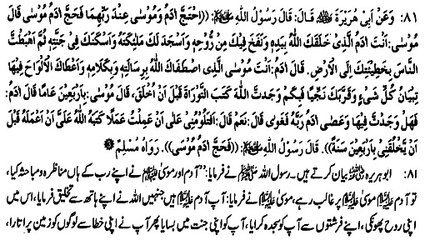 ٨١: وَعَنْ اَبِيْ هُرَيْرَةَ ﷺ قَالَ: قَالَ رَسُوْلُ اللهِ ﷺ: ((اِحْتَجَّ اٰدَمُ وَمُوْسٰى عِنْدَ رَبِّهِمَا فَحَجَّ اٰدَمُ مُوْسٰى قَالَ
مُوْسٰى: اَنْتَ اٰدَمُ الَّذِيْ خَلَقَكَ اللهُ بِيَدِهٖ وَنَفَخَ فِيْكَ مِنْ رُوْحِهٖ وَاَسْجَدَ لَكَ مَلٰئِكَتَهٗ وَاَسْكَنَكَ فِيْ جَنَّتِهٖ ثُمَّ اَهْبَطْتَ
النَّاسَ بِخَطِيْئَتِكَ اِلَى الْاَرْضِ. قَالَ اٰدَمُ: اَنْتَ مُوْسَى الَّذِيْ اصْطَفَاكَ اللهُ بِرِسَالَتِهٖ وَبِكَلَامِهٖ وَاَعْطَاكَ الْاَلْوَاحَ فِيْهَا
تِبْيَانُ كُلِّ شَيْءٍ وَقَرَّبَكَ نَجِيًّا فَبِكَمْ وَجَدْتَّ اللهَ كَتَبَ التَّوْرَاةَ قَبْلَ اَنْ اُخْلَقَ، قَالَ مُوْسٰى: بِاَرْبَعِيْنَ عَامًا قَالَ اٰدَمُ:
فَهَلْ وَجَدْتَّ فِيْهَا وَعَصٰى اٰدَمُ رَبَّهٗ فَغَوٰى قَالَ: نَعَمْ قَالَ: اَفَتَلُوْمُنِيْ عَلٰى اَنْ عَمِلْتُ عَمَلًا كَتَبَهُ اللهُ عَلَيَّ اَنْ اَعْمَلَهٗ قَبْلَ
اَنْ يَّخْلُقَنِيْ بِاَرْبَعِيْنَ سَنَةً)). قَالَ رَسُوْلُ اللهِ ﷺ: ((فَحَجَّ اٰدَمُ مُوْسٰى)). رَوَاهُ مُسْلِمٌ
٨١: ابو ہریرہ بیان کرتے ہیں۔ رسول اللہ ﷺ نے فرمایا: "آدم اور موسیٰ نے اپنے رب کے ہاں مناظرہ ومباحثہ کیا،
تو آدم موسیٰ پر غالب رہے، موسیٰ نے فرمایا: آپ آدم ہیں جنہیں اللہ نے اپنے ہاتھ سے تخلیق فرمایا،
اپنی روح پھونکی، اپنے فرشتوں سے آپ کو سجدہ کرایا، آپ کو اپنی جنت میں بسایا پھر آپ نے اپنی خطا سے لوگوں کو زمین پر اتارا،